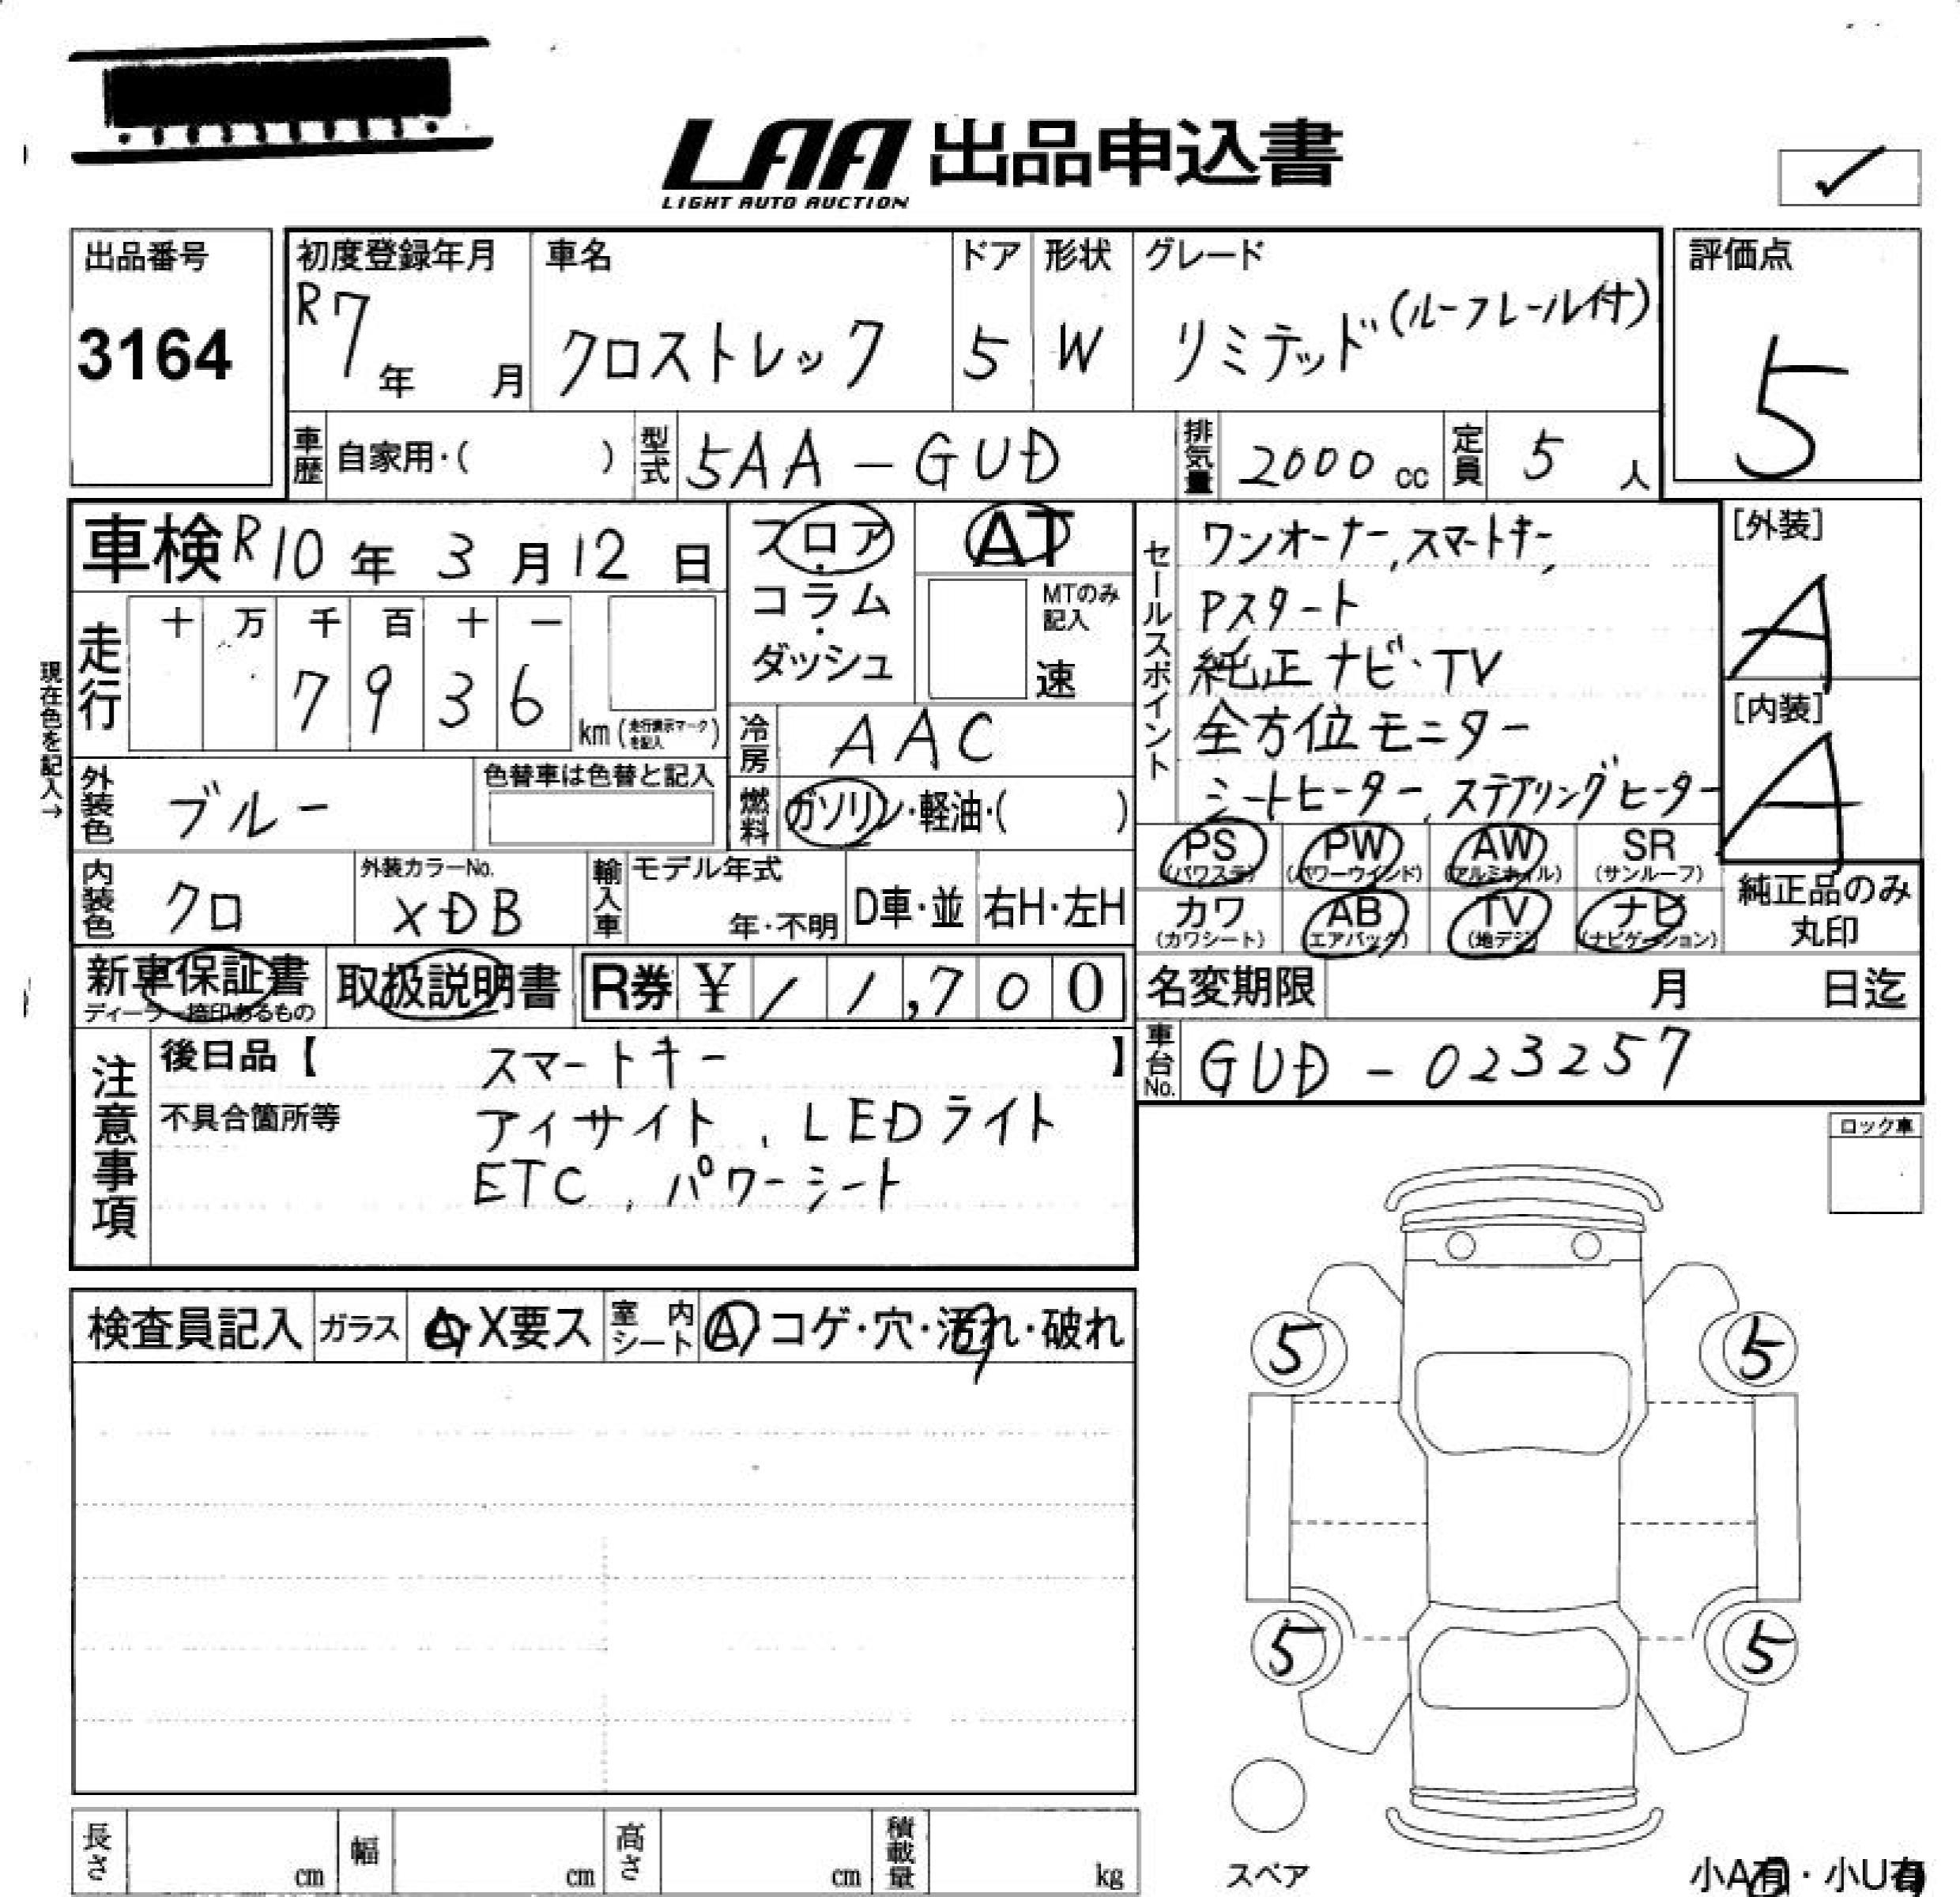 LAA 出品申込書
LIGHT AUTO AUCTION
出品番号
3164
初度登録年月
R7年 月
車名
クロストレック
ドア
5
形状
W
グレード
リミテッド(ルーフレール付)
評価点
5
車歴 自家用・( )
型式 5AA-GUD
排気量 2000cc
定員 5人
車検 R10年3月12日
現在色を記入→
走行 十 万 千 百 十 一
7936
km(走行表示マークを記入)
外装色 ブルー
色替車は色替と記入
内装色 クロ
外装カラーNo.
XDB
フロア・コラム・ダッシュ
AT
MTのみ記入
速
冷房 AAC
燃料 ガソリン・軽油・( )
輸入車 モデル年式
年・不明
D車・並
右H・左H
セールスポイント
ワンオーナー,スマートキー,
Pスタート
純正ナビ・TV
全方位モニター
シートヒーター,ステアリングヒーター
[外装]
A
[内装]
A
PS(パワステ) PW(パワーウインド) AW(アルミホイル) SR(サンルーフ)
カワ(カワシート) AB(エアバック) TV(地デジ) ナビ(ナビゲーション)
純正品のみ丸印
新車保証書
ディーラー捺印あるもの
取扱説明書
R券 ¥11,700
名変期限 月 日迄
車台No. GUD-023257
注意事項
後日品【 スマートキー 】
不具合箇所等 アイサイト,LEDライト
ETC,パワーシート
ロック車
検査員記入 ガラス A・X要ス 室内シート A コゲ・穴・汚れ・破れ
5 5
5 5
スペア
長さ cm 幅 cm 高さ cm 積載量 kg
小A有・小U有